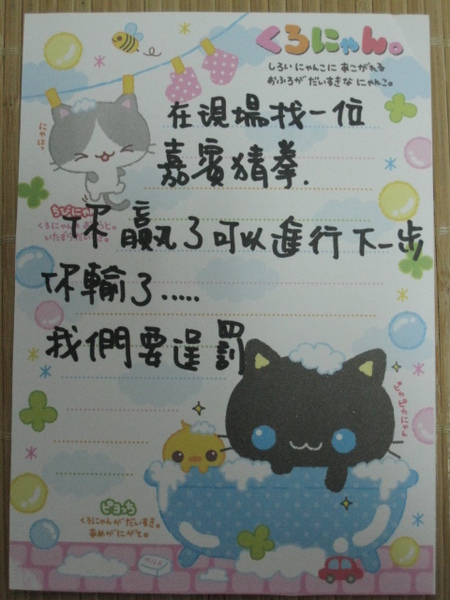 くろにゃん。
しろい にゃんこに あこがれる
おふろが だいすきな にゃんこ。
にゃは。
在現場找一位
嘉賓猜拳.
你 贏了可以進行下一步
你輸了.....
我們要逞罰
ちびにゃ
くろにゃんの
いたずら
ピヨっち
くろにゃんがだいすき。
あめがにがて。
MILK